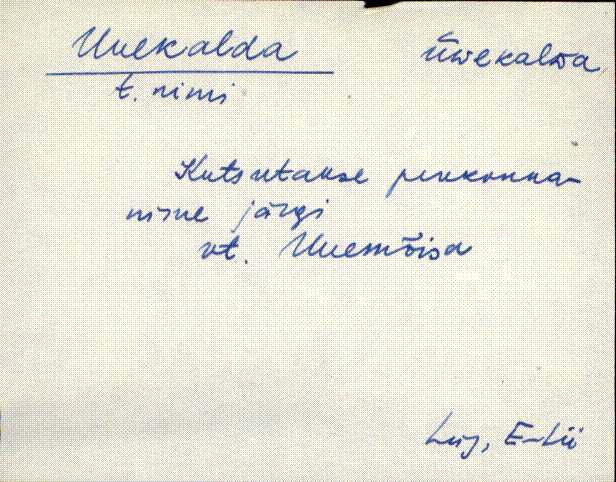 Uuekalda üwekalda
t. nimi
Kutsutakse perekonna-
nime järgi
vt. Uuemõisa
Lüg, E-Lii